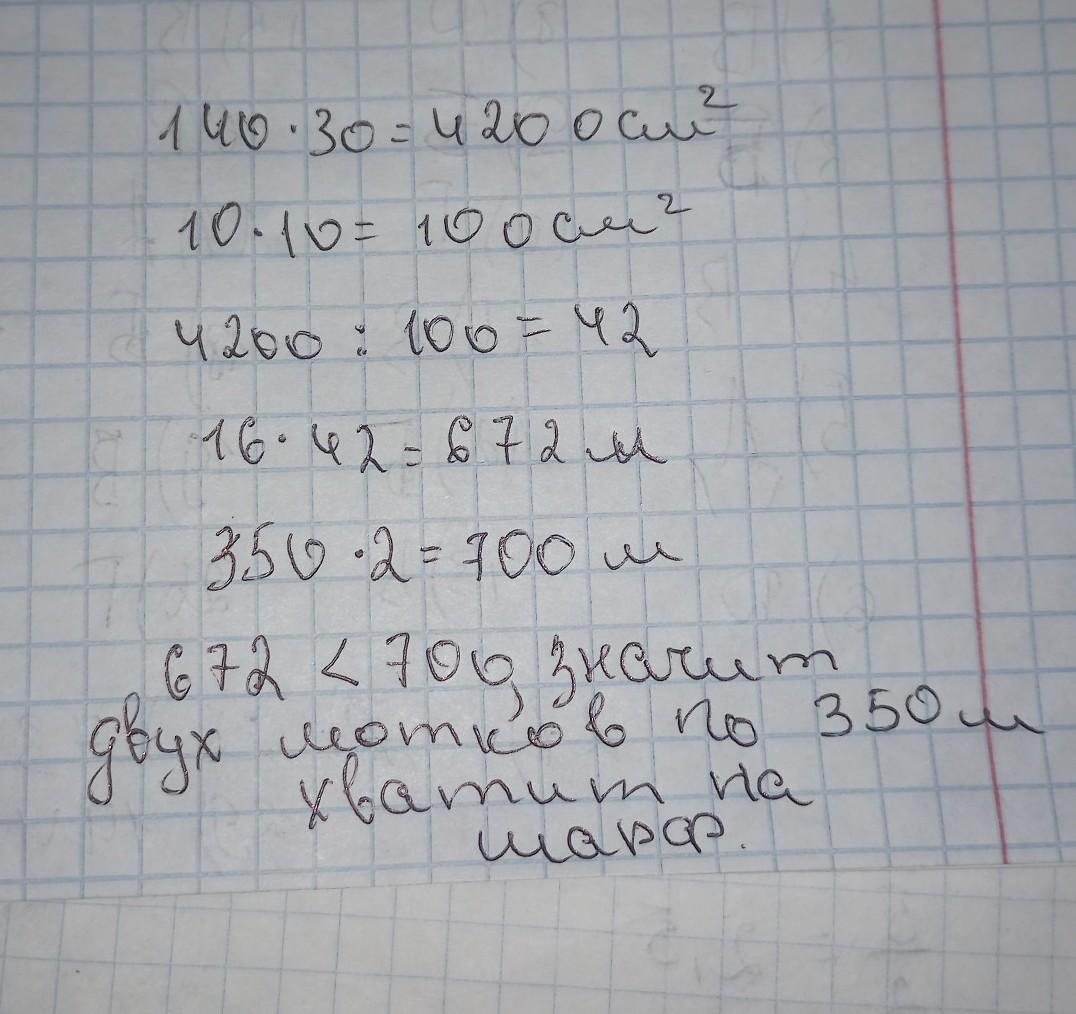 140·30=4200см²
10·10= 100см²
4200 : 100 = 42
16· 42 = 672 м
350 ·2 = 700 м
672 < 700, значит
двух мотков по 350 м
хватит на
шарф.